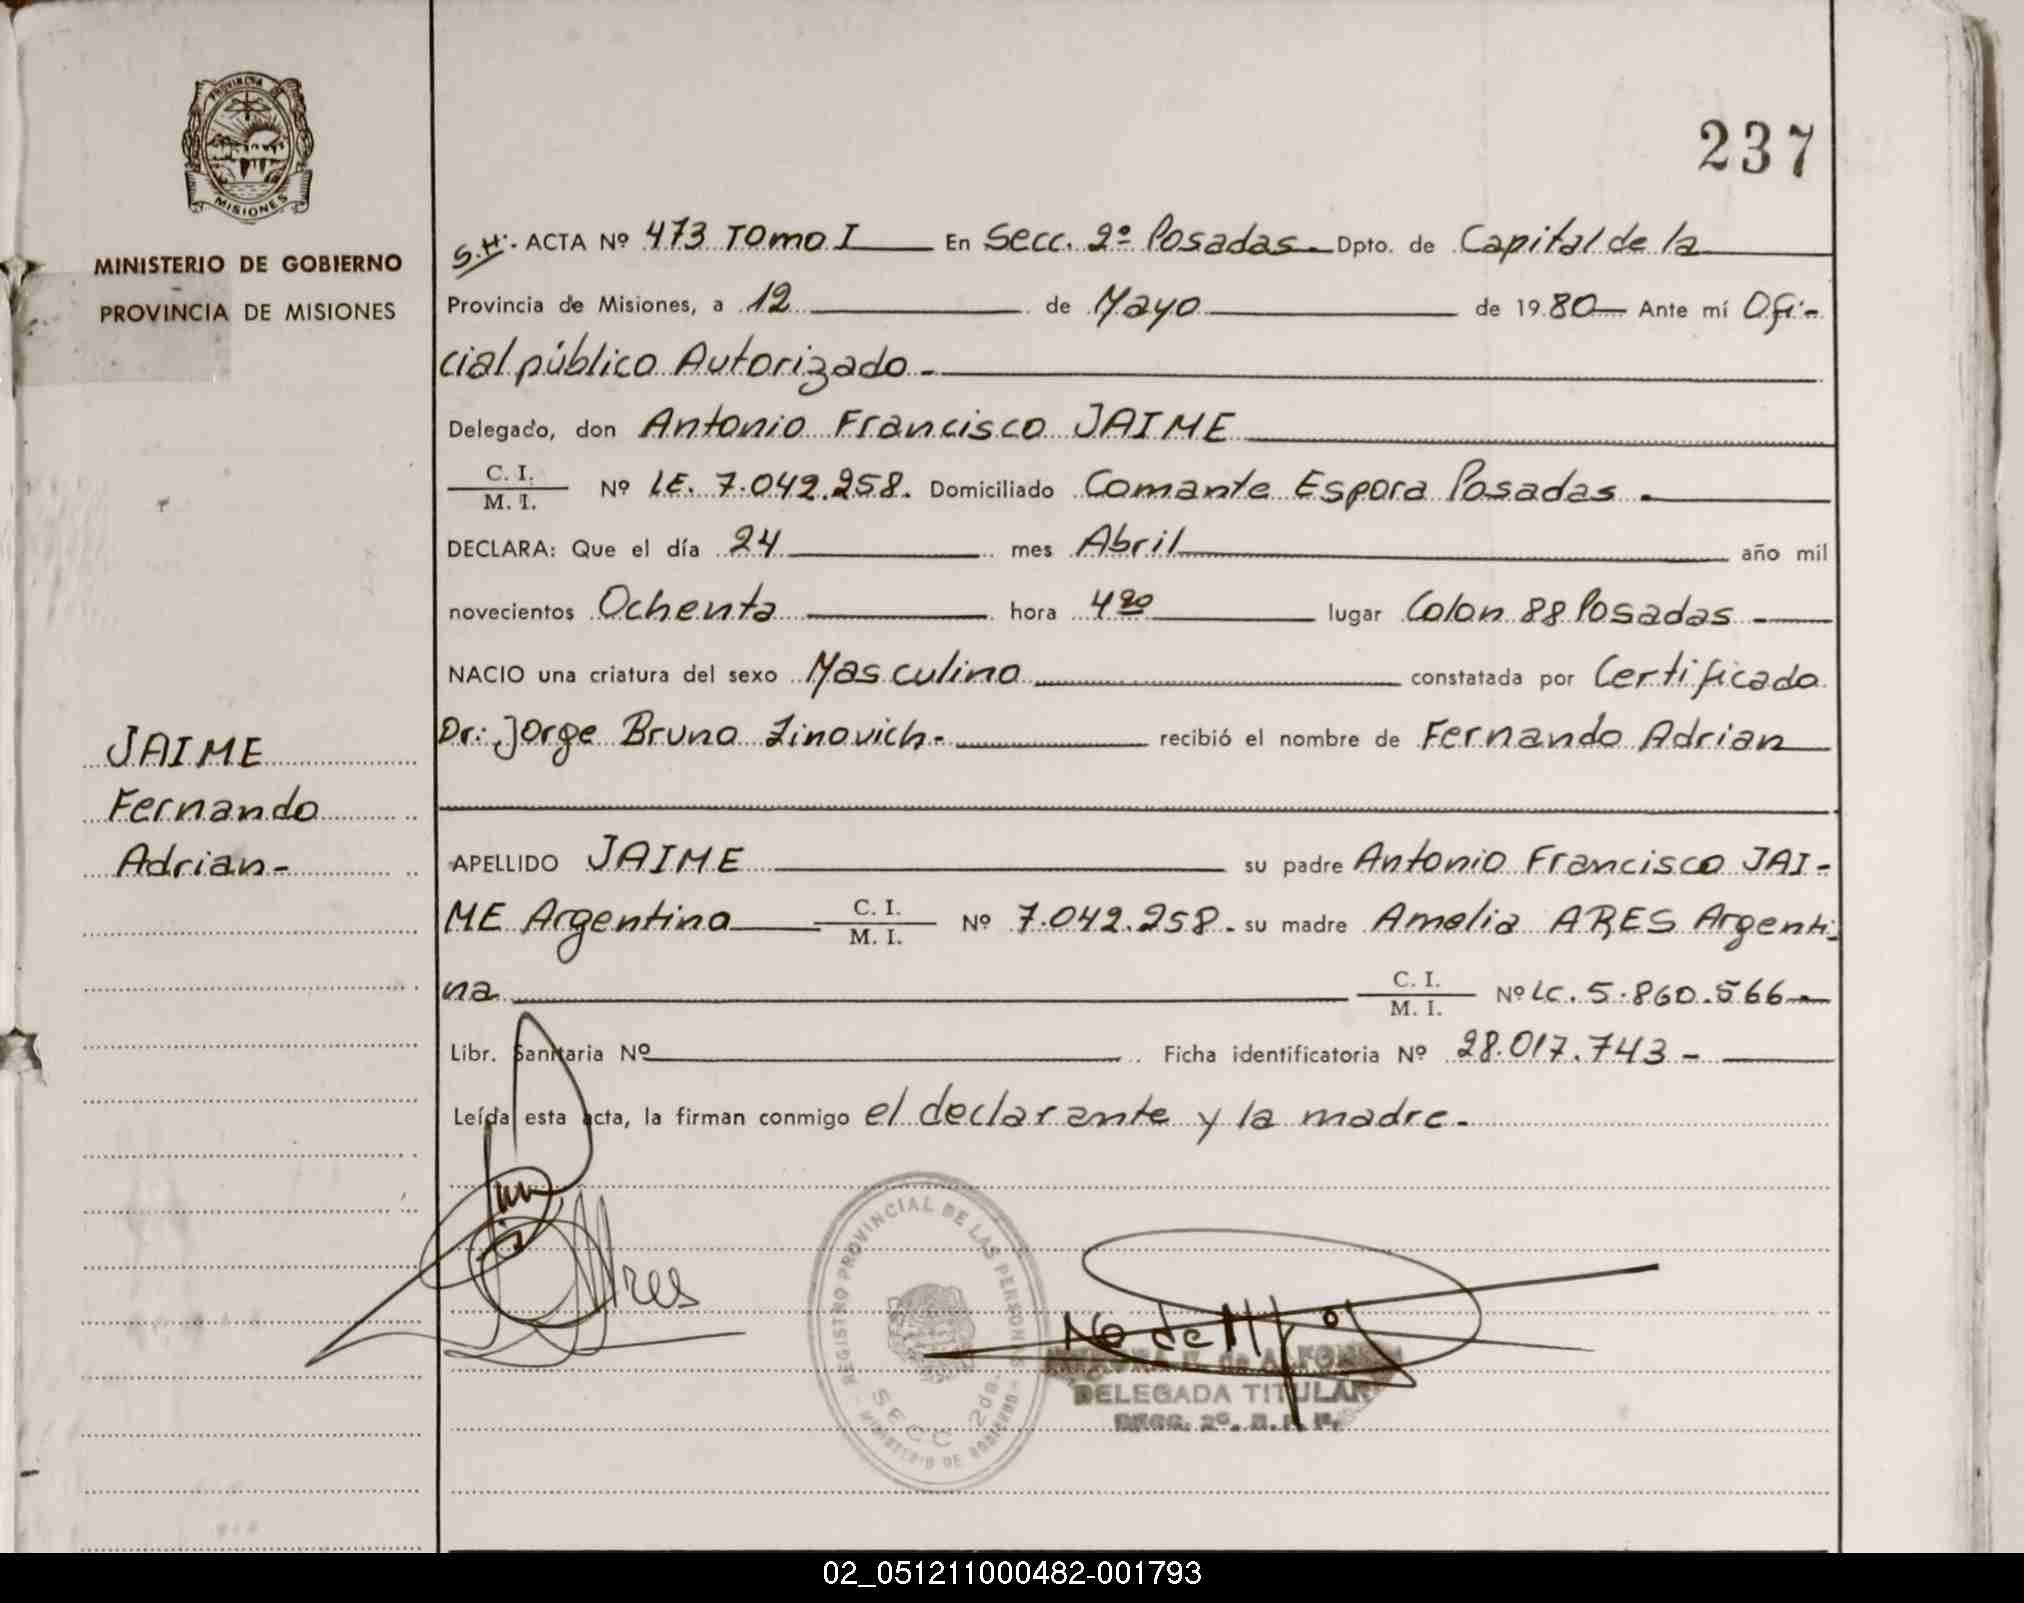 PROVINCIA DE
MISIONES
MINISTERIO DE GOBIERNO
PROVINCIA DE MISIONES
237
S.H. ACTA Nº 473 Tomo I En Secc. 2º Posadas Dpto. de Capital de la
Provincia de Misiones, a 12 de Mayo de 1980 Ante mí Ofi-
cial público Autorizado -
Delegado, don Antonio Francisco JAIME
C. I.
M. I. Nº LE. 7.042.258. Domiciliado Comante Espora Posadas .
DECLARA: Que el día 24 mes Abril año mil
novecientos Ochenta hora 4 20 lugar Colon 88 Posadas
NACIO una criatura del sexo Masculino constatada por Certificado
Dr: Jorge Bruno Zinovich- recibió el nombre de Fernando Adrian
JAIME
Fernando
Adrian-
APELLIDO JAIME su padre Antonio Francisco JAI-
ME Argentino C. I. M. I. Nº 7.042.258. su madre Amelia ARES Argenti-
na C. I. M. I. Nº LC. 5.860.566
Libr. Sanitaria Nº Ficha identificatoria Nº 28.017.743 -
Leída esta acta, la firman conmigo el declarante y la madre.
Ares
REGISTRO PROVINCIAL DE LAS PERSONAS
SECC 2da.
MINISTERIO DE GOBIERNO
DELEGADA TITULAR
SECC. 2º. R. P. P.
02_051211000482-001793